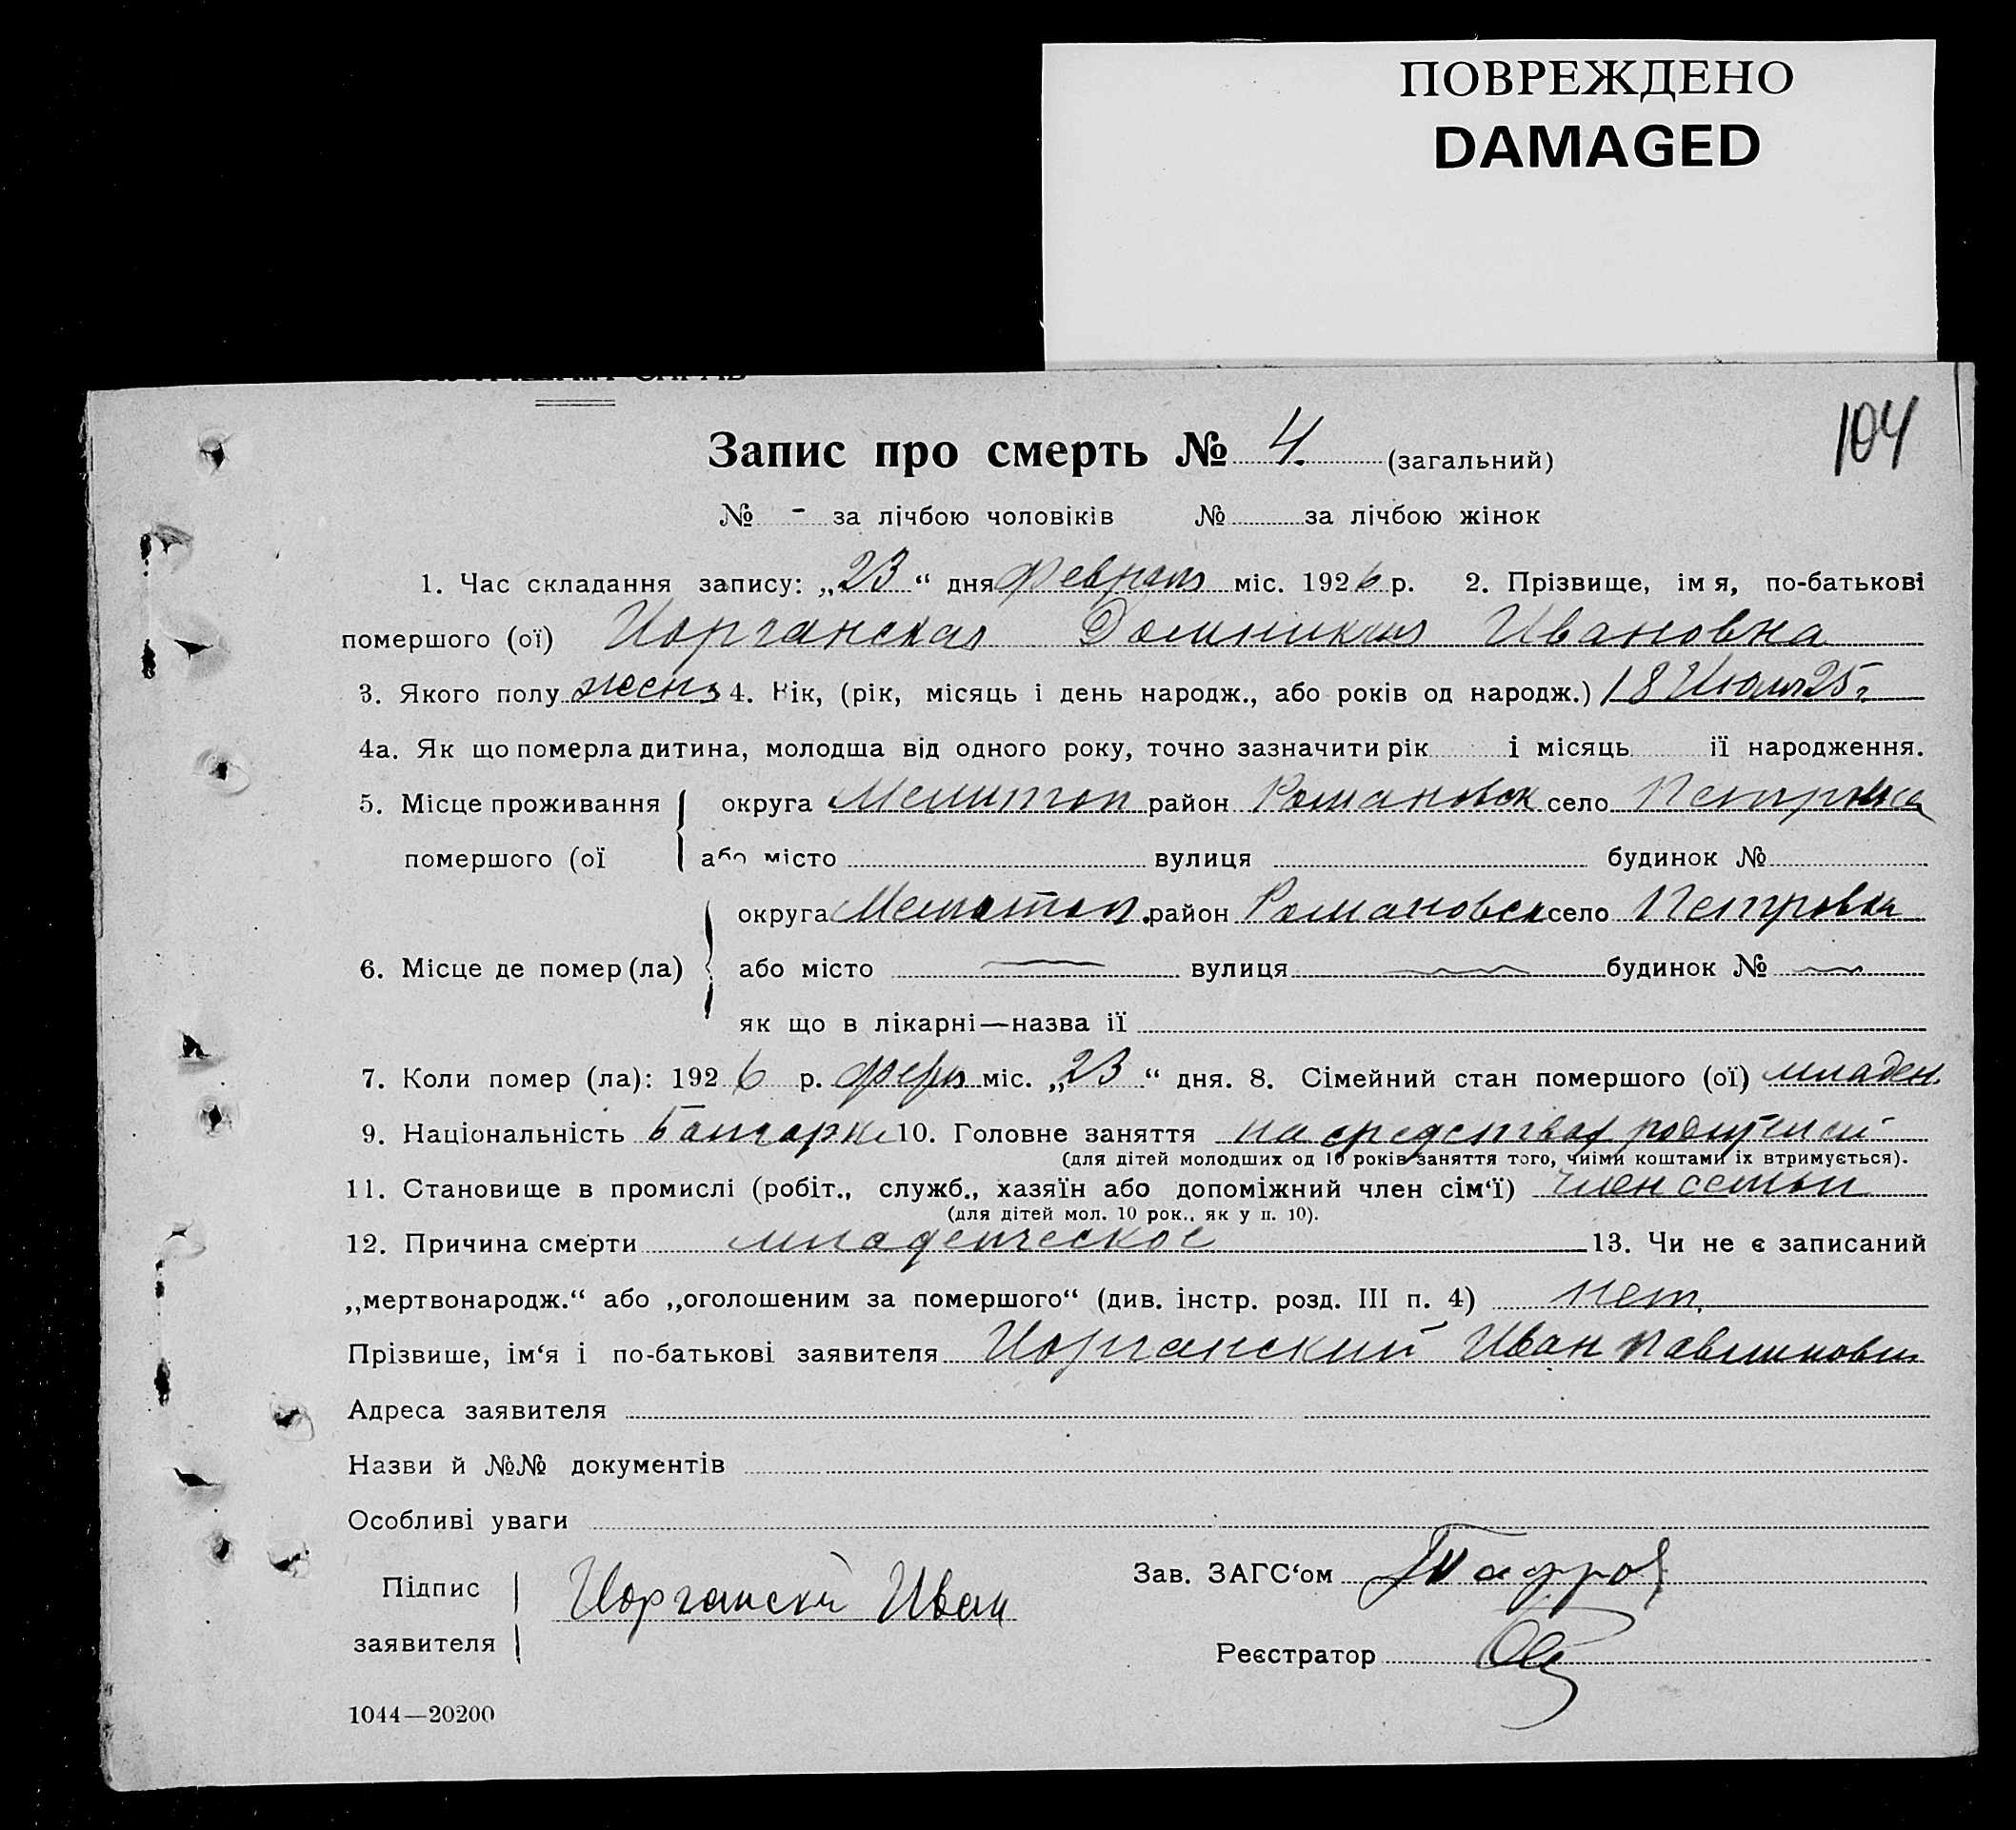 ПОВРЕЖДЕНО
DAMAGED
104
Запис про смерть № 4. (загальний)
№ - за лічбою чоловіків № за лічбою жінок
1. Час складання запису: „23“ дня февраля міс. 1926 р. 2. Прізвище, імя, по-батькові
помершого (ої) Иорганская Домникия Ивановна
3. Якого полу женс 4. Вік, (рік, місяць і день народж., або років од народж.) 18 Июля 25 г.
4а. Як що померла дитина, молодша від одного року, точно зазначити рік і місяць її народження.
5. Місце проживання округа Мелитоп район Романовск село Петровка
помершого (ої або місто вулиця будинок №
округа Мелитоп. район Романовск село Петровка
6. Місце де помер (ла) або місто вулиця будинок №
як що в лікарні—назва її
7. Коли помер (ла): 1926 р. февр міс. „23“ дня. 8. Сімейний стан помершого (ої) младен.
9. Національність Болгарк 10. Головне заняття на средствах родителей
(для дітей молодших од 10 років заняття того, чиїми коштами їх втримується).
11. Становище в промислі (робіт., служб., хазяїн або допоміжний член сім‘ї) член семьи
(для дітей мол. 10 рок., як у п. 10).
12. Причина смерти младенческое 13. Чи не є записаний
„мертвонародж.“ або „оголошеним за помершого“ (див. інстр. розд. III п. 4) нет.
Прізвише, ім‘я і по-батькові заявителя Иорганский Иван
Адреса заявителя
Назви й №№ документів
Особливі уваги
Підпис Иоргански Иван Зав. ЗАГС‘ом
заявителя Реєстратор
1044—20200